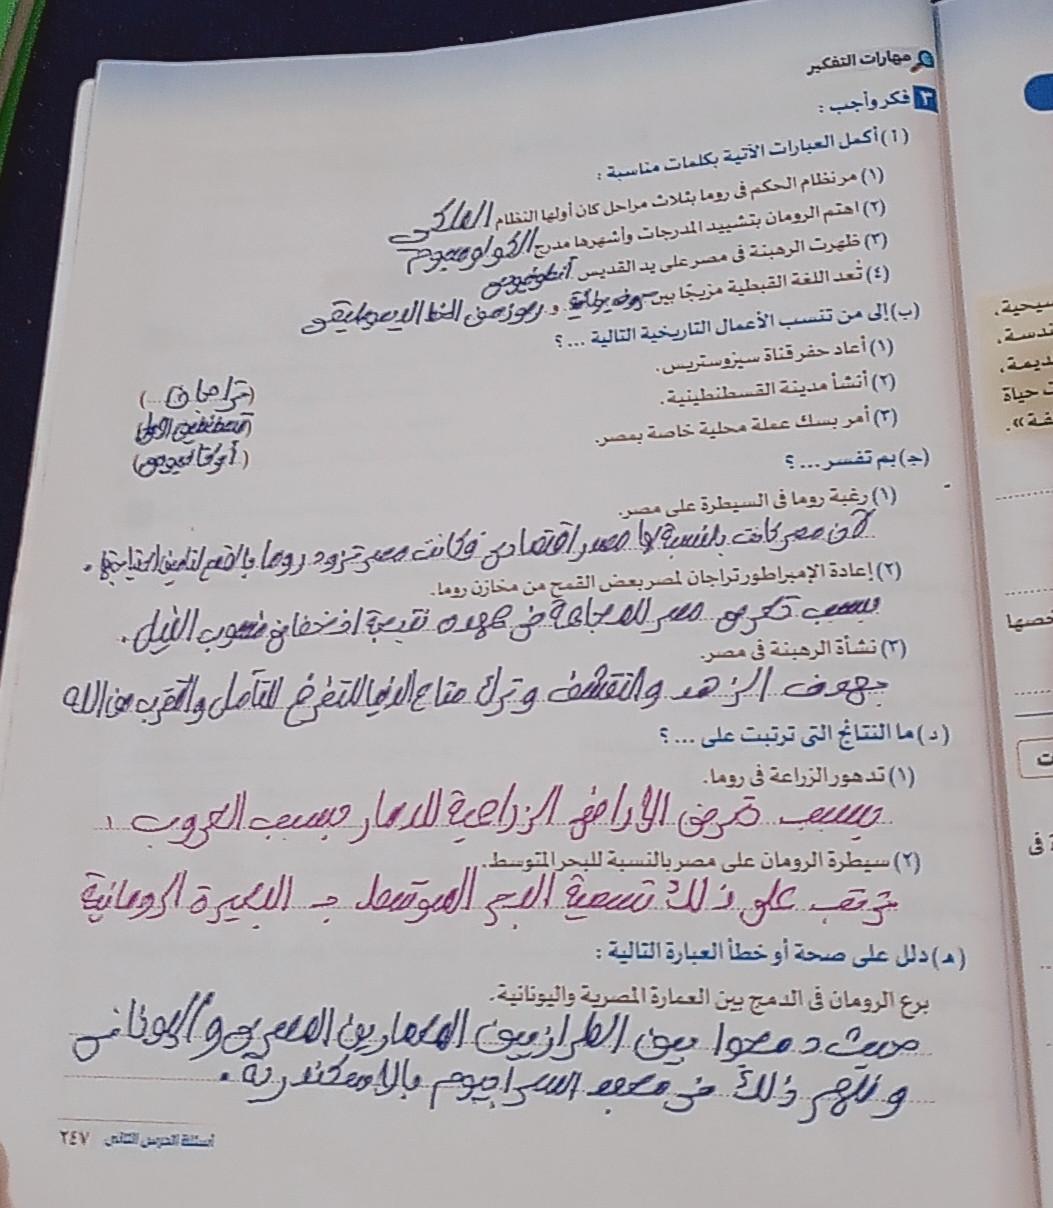 مهارات التفكير
٣ فكر وأجب :
(أ) أكمل العبارات الآتية بكلمات مناسبة :
(١) مر نظام الحكم فى روما بثلاث مراحل كان أولها النظام الملكى
(٢) اهتم الرومان بتشييد المدرجات وأشهرها مدرج الكولوسيوم
(٣) ظهرت الرهبنة فى مصر على يد القديس أنطونيوس
(٤) تُعد اللغة القبطية مزيجًا بين حروف يونانية و رموز من الخط الديموطيقى
(ب) إلى من تنسب الأعمال التاريخية التالية ... ؟
(١) أعاد حفر قناة سيزوستريس. (تراجان)
(٢) أنشأ مدينة القسطنطينية. (قسطنطين الاول)
(٣) أمر بسك عملة محلية خاصة بمصر. (أوكتافيوس)
(ج) بم تفسر ... ؟
(١) رغبة روما فى السيطرة على مصر.
لأن مصر كانت بالنسبة لها مصدر اقتصادى وكانت مصر تزود روما بالقمح لتأمين احتياجتها .
(٢) إعادة الإمبراطور تراجان لمصر بعض القمح من مخازن روما.
بسبب تعرض مصر للمجاعة فى عهده نتيجة انخفاض منسوب النيل .
(٣) نشأة الرهبنة فى مصر.
بهدف الزهد والتقشف وترك متاع الدنيا للتفرغ للتأمل والتقرب من الله
(د) ما النتائج التى ترتبت على ... ؟
(١) تدهور الزراعة فى روما.
بسبب تعرض الأراضى الزراعية للدمار بسبب الحروب
(٢) سيطرة الرومان على مصر بالنسبة للبحر المتوسط.
ترتب على ذلك تسمية البحر المتوسط بـ البحيرة الرومانية
(هـ) دلل على صحة أو خطأ العبارة التالية :
برع الرومان فى الدمج بين العمارة المصرية واليونانية.
حيث دمجوا بين الطرازيين المعمارين المصرى واليونانى
وظهر ذلك فى معبد السرابيوم بالاسكندرية .
أسئلة الدرس الثانى ٢٤٧
سيحية،
ندسة،
ديمة،
ت حياة
فة».
خصها
ت
فى